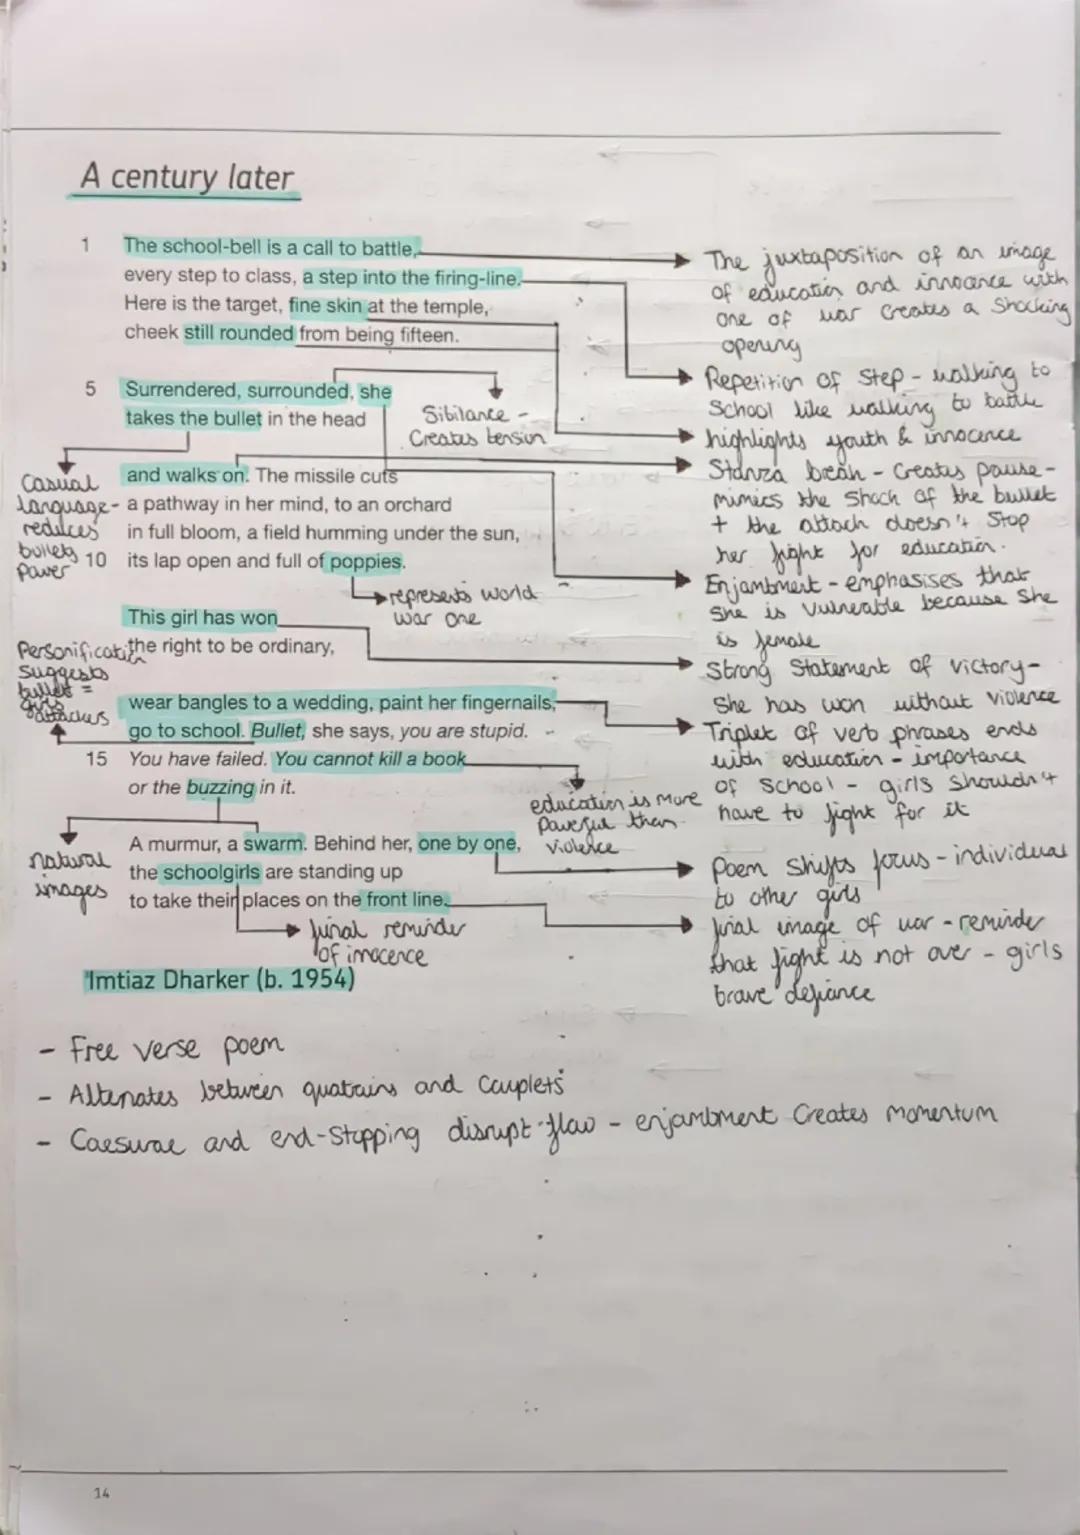 A century later
1 The school-bell is a call to battle,
every step to class, a step into the firing-line.
Here is the target, fine skin at the temple,
cheek still rounded from being fifteen.
5 Surrendered, surrounded, she
takes the bullet in the head
and walks on. The missile cuts
a pathway in her mind, to an orchard
in full bloom, a field humming under the sun,
10 its lap open and full of poppies.
This girl has won
the right to be ordinary,
wear bangles to a wedding, paint her fingernails,
go to school. Bullet, she says, you are stupid.
15 You have failed. You cannot kill a book
or the buzzing in it.
A murmur, a swarm. Behind her, one by one,
the schoolgirls are standing up
to take their places on the front line.
Imtiaz Dharker (b. 1954)
Sibilance -
Creates tension
Casual
language -
reduces
bullets
power
represents world
war one
Personification
suggests
bullet =
girls
attackers
education is more
powerful than
violence
natural
images
final reminder
of innocence
The juxtaposition of an image
of education and innocence with
one of war creates a shocking
opening
Repetition of step - walking to
school like walking to battle
highlights youth & innocence
Stanza break - creates pause -
mimics the shock of the bullet
+ the attack doesn't stop
her fight for education.
Enjambment - emphasises that
she is vulnerable because she
is female
Strong statement of victory -
she has won without violence
Triplet of verb phrases ends
with education - importance
of school - girls shouldn't
have to fight for it
Poem shifts focus - individual
to other girls
final image of war - reminder
that fight is not over - girls
brave defiance
- Free verse poem
- Alternates between quatrains and couplets
- Caesurae and end-stopping disrupt flow - enjambment creates momentum
14